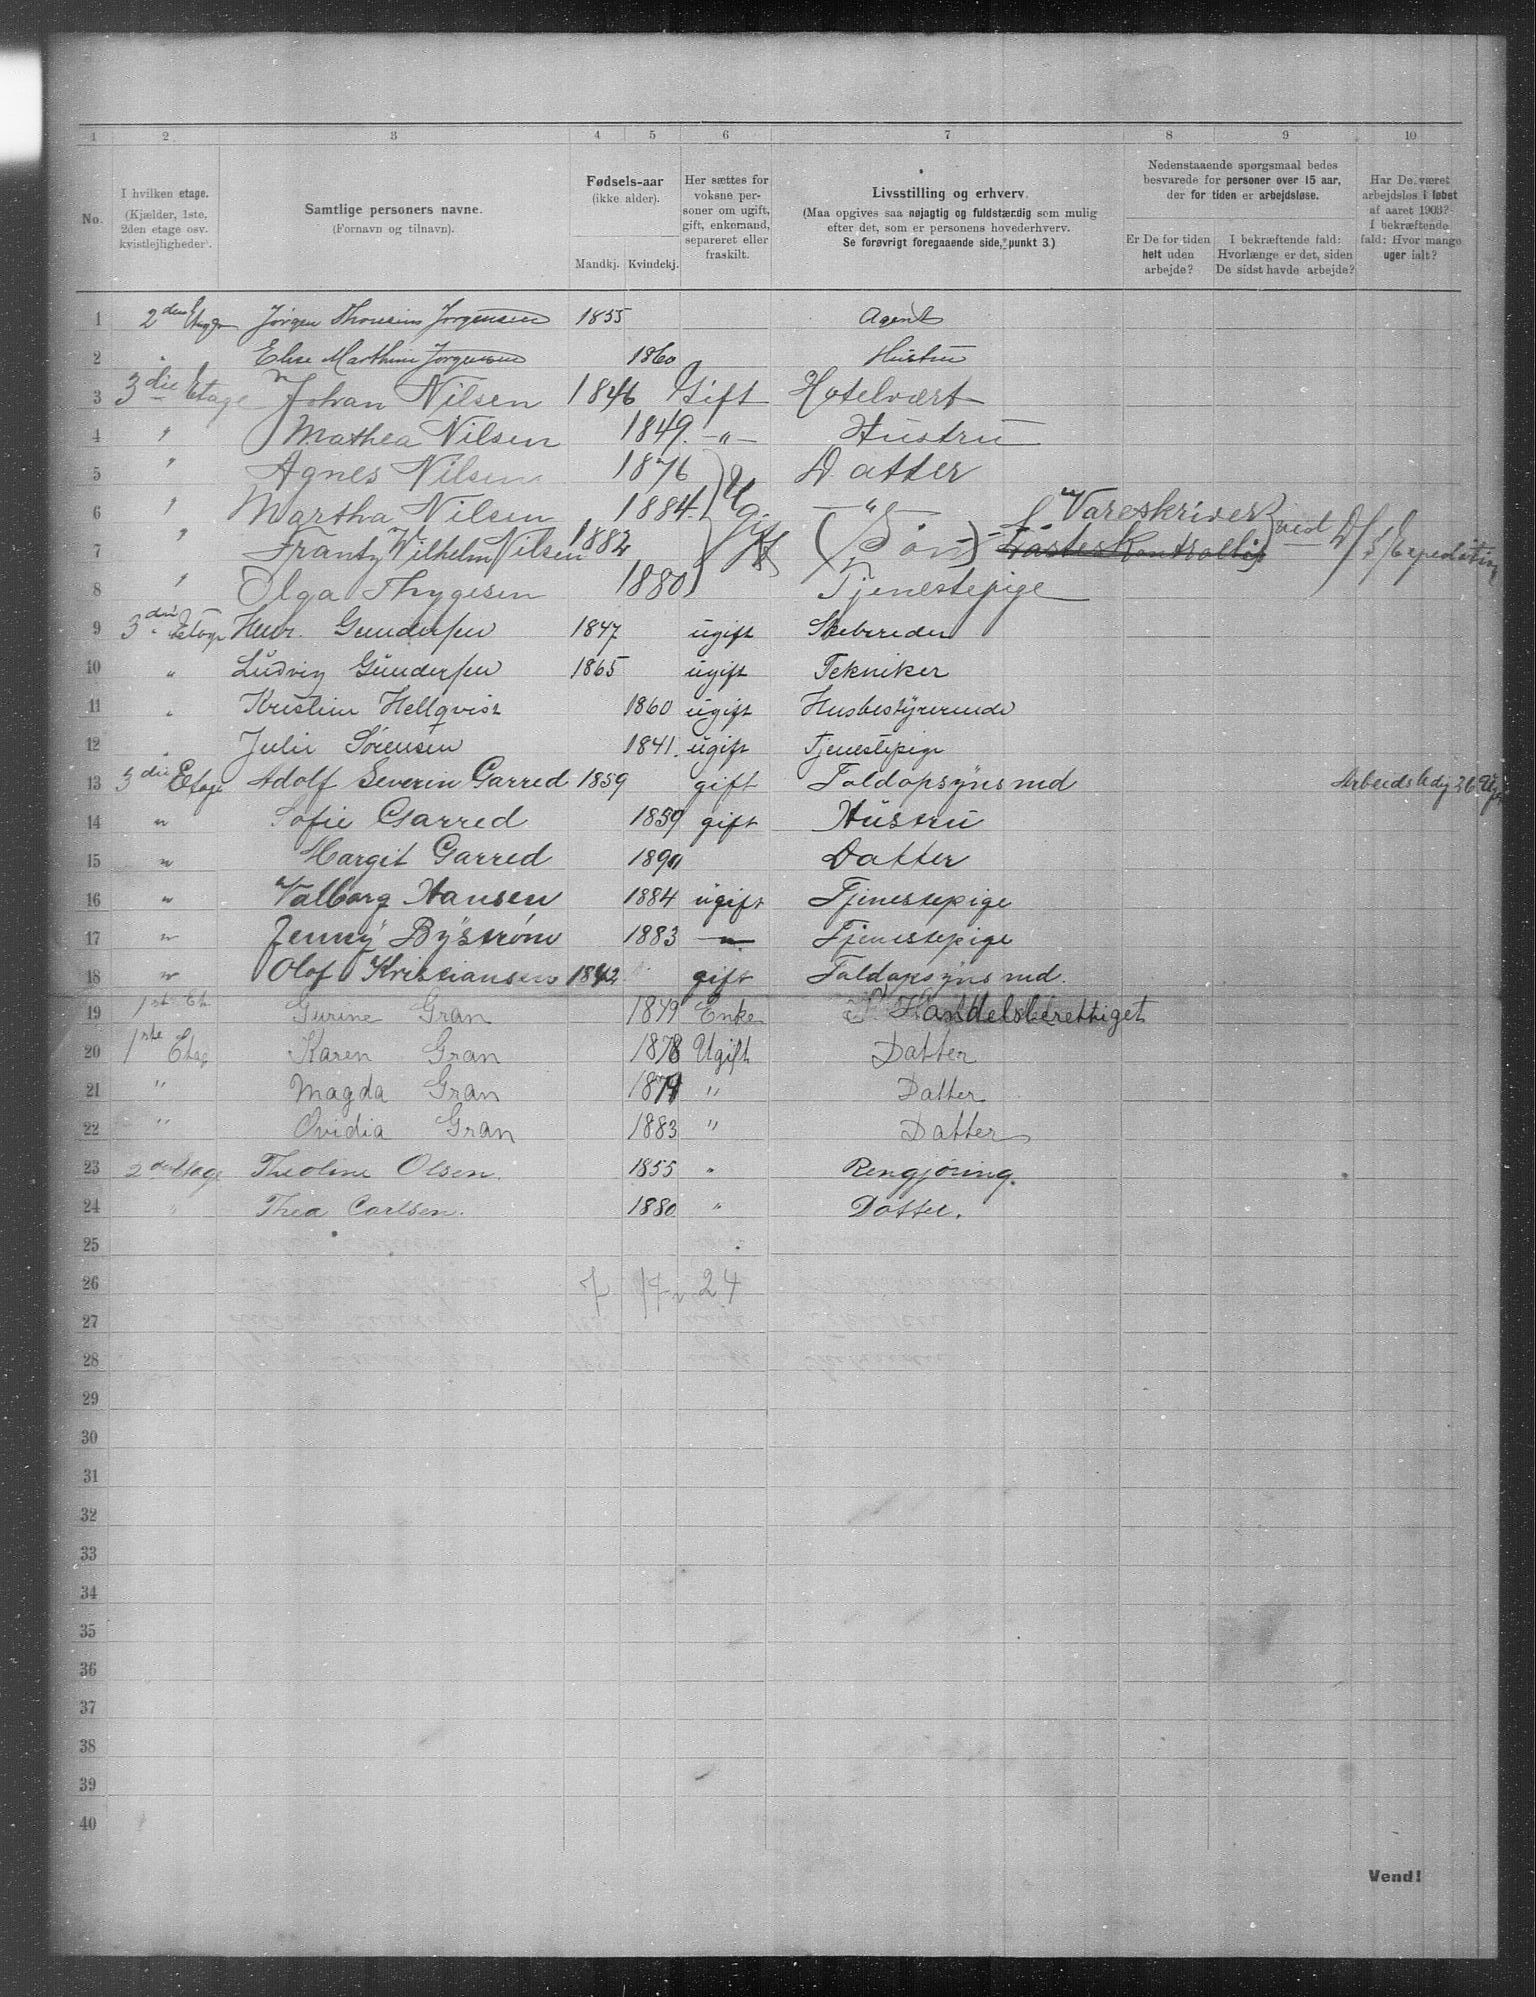 1 2 3 4 5 6 7 8 9 10
No.
I hvilken etage.
(Kjælder, 1ste,
2den etage osv.
kvistlejligheder).
Samtlige personers navne.
(Fornavn og tilnavn).
Fødsels-aar
(ikke alder).
Mandkj. Kvindekj.
Her sættes for
voksne per-
soner om ugift,
gift, enkemand,
separeret eller
fraskilt.
Livsstilling og erhverv.
(Maa opgives saa nøjagtig og fuldstændig som mulig
efter det, som er personens hovederhverv.
Se forøvrigt foregaaende side, punkt 3.)
Nedenstaaende spørgsmaal bedes
besvarede for personer over 15 aar,
der for tiden er arbejdsløse.
Er De for tiden
helt uden
arbejde?
I bekræftende fald:
Hvorlænge er det, siden
De sidst havde arbejde?
Har De været
arbejdsløs i løbet
af aaret 1903?
I bekræftende
fald: Hvor mange
uger ialt?
1 2den Etage Jørgen Jørgensen 1855 Agent
2 " Elise Marthine Jørgensen 1860 Hustru
3 3die Etage Johan Nilsen 1846 Gift Hotelvært
4 " Mathea Nilsen 1849. –"– Hustru
5 " Agnes Nilsen 1876 Datter
6 " Martha Nilsen 1884. Ugift –"– Vareskriver
7 " Frantz Wilhelm Nilsen 1882 (Søn) ved D/S Expedition
8 " Olga Thygesen 1880 Tjenestepige
9 3die Etage Gundersen 1847 ugift Skibsreder
10 " Ludvig Gundersen 1865 ugift Tekniker
11 " Kristine Hellqvist 1860 ugift Husbestyrerinde
12 " Julie Sørensen 1841. ugift Tjenestepige
13 3die Etage Adolf Severin Garred 1859 gift Toldopsynsmd Arbeidsledig 36
14 " Sofie Garred 1859 gift Hustru
15 " Margit Garred 1890 Datter
16 " Valborg Hansen 1884 ugift Tjenestepige
17 " Jenny Byström 1883 –"– Tjenestepige
18 " Olof Kristiansen 1842 gift Toldopsynsmd.
19 1ste Et. Gurine Gran 1849 Enke Handelsberettiget
20 1ste Etag Karen Gran 1878 Ugift Datter
21 " Magda Gran 1879 " Datter
22 " Ovidia Gran 1883 " Datter
23 2den Etage Theoline Olsen. 1855 " Rengjøring.
24 " Thea Carlsen. 1880 " Datter.
25
26 7 17 24
27
28
29
30
31
32
33
34
35
36
37
38
39
40
Vend!